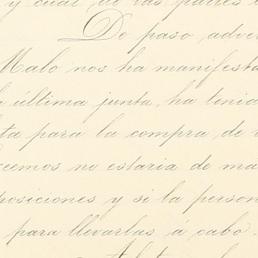 y cual de las partes
De paso adver
Malo nos ha manifesta
última junta, ha tenid
ta para la compra de
cemos no estaria de ma
posiciones y si la person
para llevarlas á cabo.